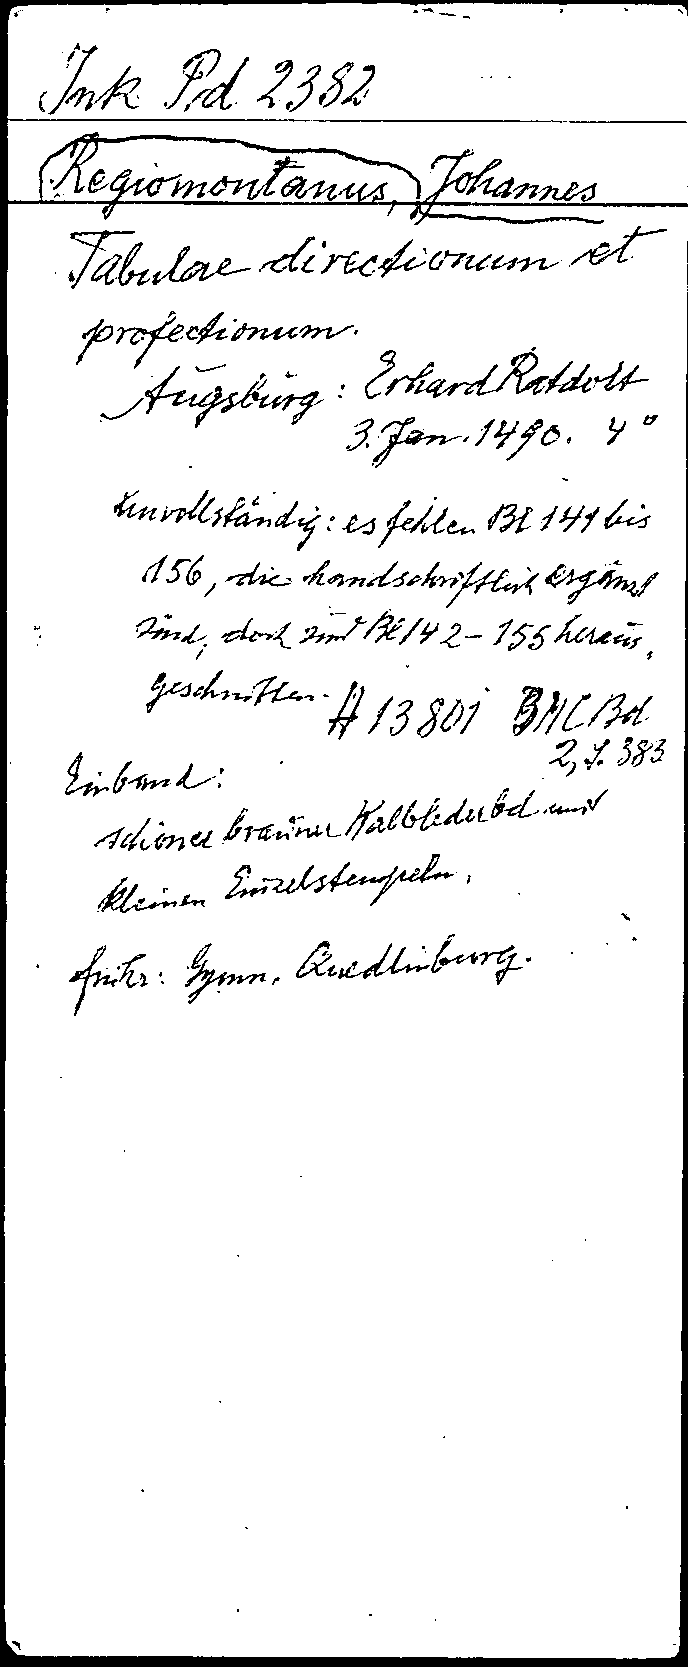 Ink Pd 2382
Regiomontanus, Johannes
Tabulae directionum et
profectionum.
Augsburg: Erhard Ratdolt
3. Jan. 1490. 4°
Unvollständig: es fehlen Bl 141 bis
156, die handschriftlich ergänzt
sind, doch sind Bl 142-155 heraus,
geschnitten.
H 13801 BMC Bd
2, S. 383
Einband:
schöner brauner Kalblederbd mit
kleinen Einzelstempeln.
früher: Gymn. Quedlinburg.